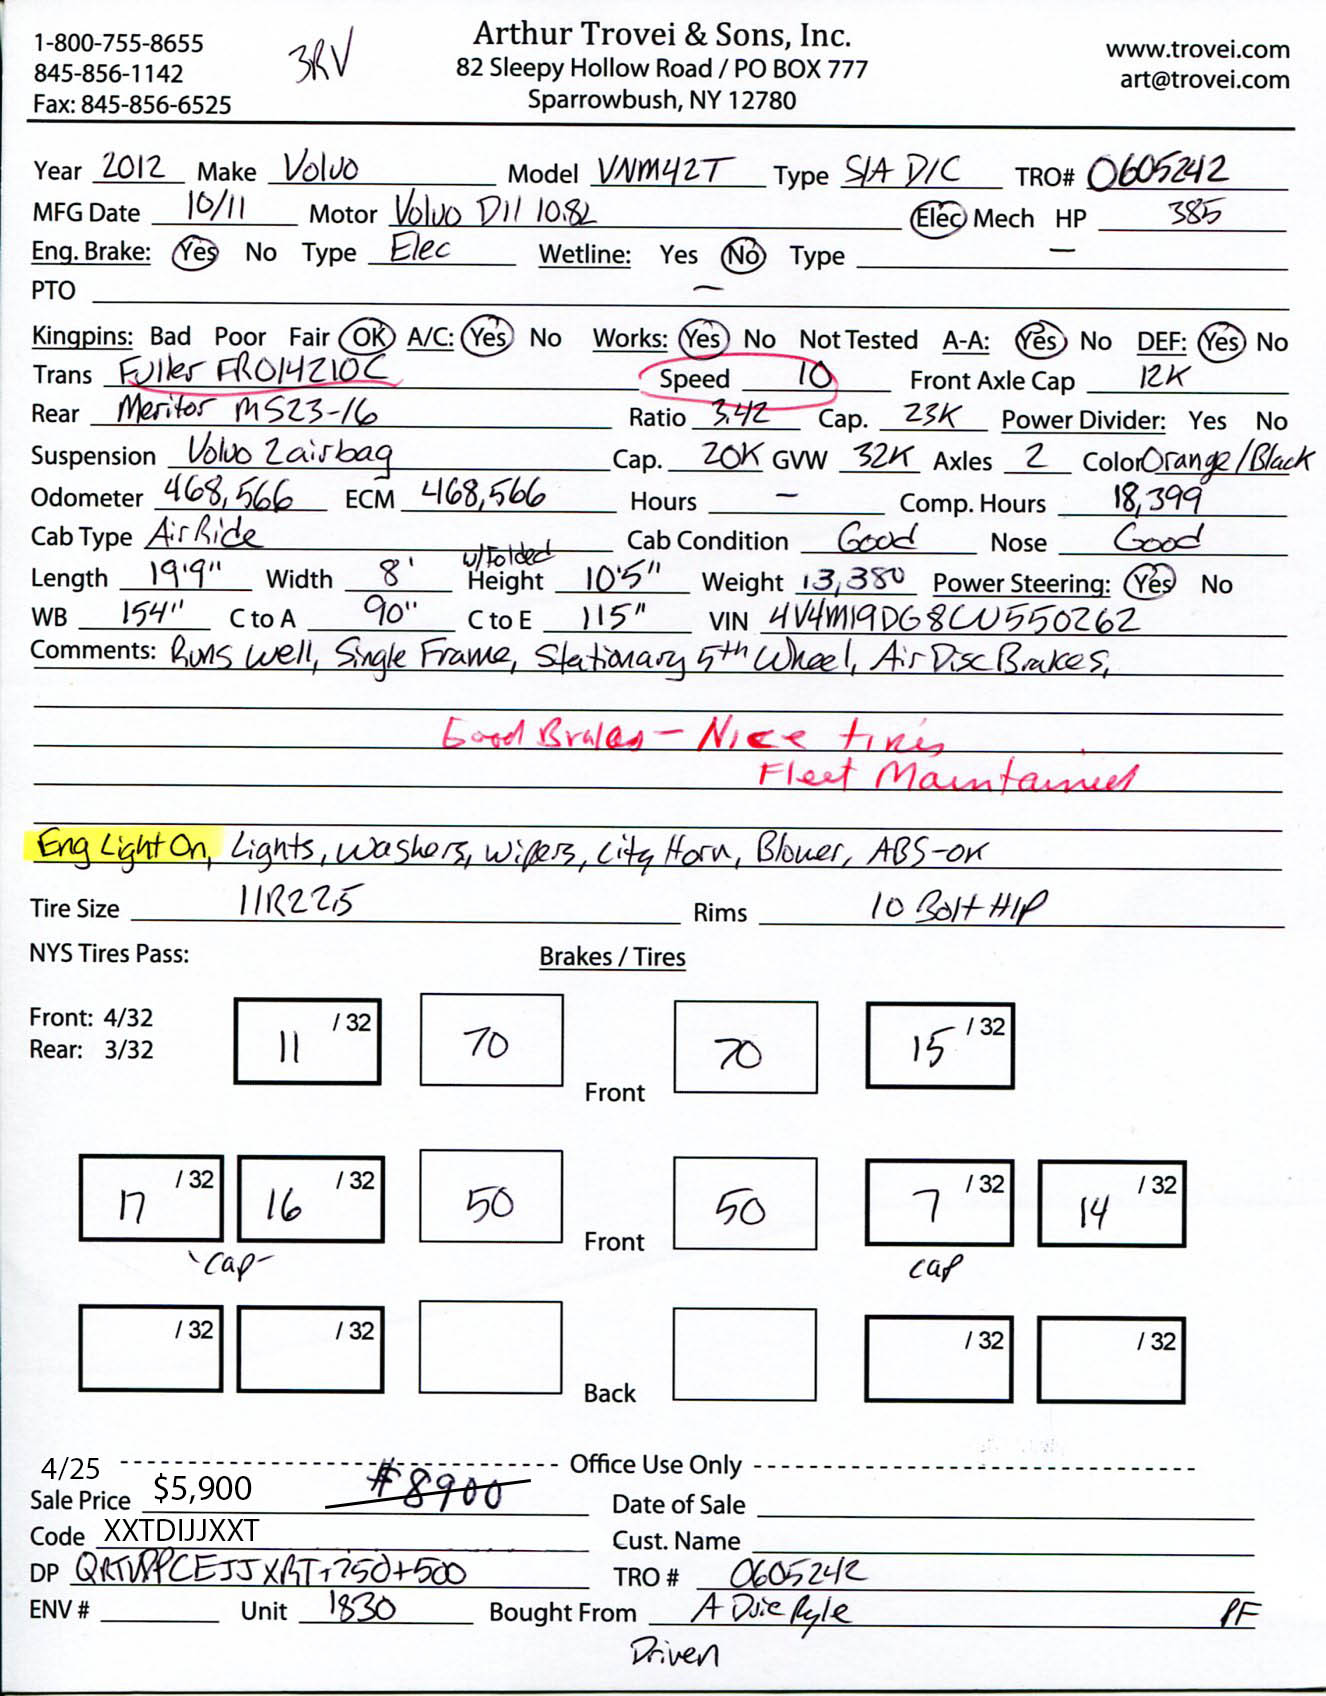 1-800-755-8655
845-856-1142
Fax: 845-856-6525
3RV
Arthur Trovei & Sons, Inc.
82 Sleepy Hollow Road / PO BOX 777
Sparrowbush, NY 12780
www.trovei.com
art@trovei.com
Year 2012 Make Volvo Model VNM42T Type S/A D/C TRO# 0605242
MFG Date 10/11 Motor Volvo D11 10.8L Elec Mech HP 385
Eng. Brake: Yes No Type Elec Wetline: Yes No Type —
PTO —
Kingpins: Bad Poor Fair OK A/C: Yes No Works: Yes No Not Tested A-A: Yes No DEF: Yes No
Trans Fuller FRO14210C Speed 10 Front Axle Cap 12K
Rear Meritor MS23-16 Ratio 3.42 Cap. 23K Power Divider: Yes No
Suspension Volvo 2airbag Cap. 20K GVW 32K Axles 2 Color Orange/Black
Odometer 468,566 ECM 468,566 Hours — Comp. Hours 18,399
Cab Type Air Ride Cab Condition Good Nose Good
Length 19'9" Width 8' w/Folded Height 10'5" Weight 13,380 Power Steering: Yes No
WB 154" C to A 90" C to E 115" VIN 4V4M19DG8CU550262
Comments: Runs well, Single Frame, Stationary 5th Wheel, Air Disc Brakes,
Good Brakes - Nice tires
Fleet Maintained
Eng Light On, Lights, Washers, Wipers, City Horn, Blower, ABS-OK
Tire Size 11R22.5 Rims 10 Bolt H/P
NYS Tires Pass: Brakes / Tires
Front: 4/32
Rear: 3/32
11 /32 70 Front 70 15 /32
17 /32 16 /32 50 Front 50 7 /32 14 /32
-Cap- cap
/32 /32 Back /32 /32
4/25 Office Use Only
Sale Price $5,900 #8900 Date of Sale
Code XXTDIJJXXT Cust. Name
DP +750+500 TRO # 0605242
ENV # Unit 1830 Bought From A Duie Pyle PF
Driven